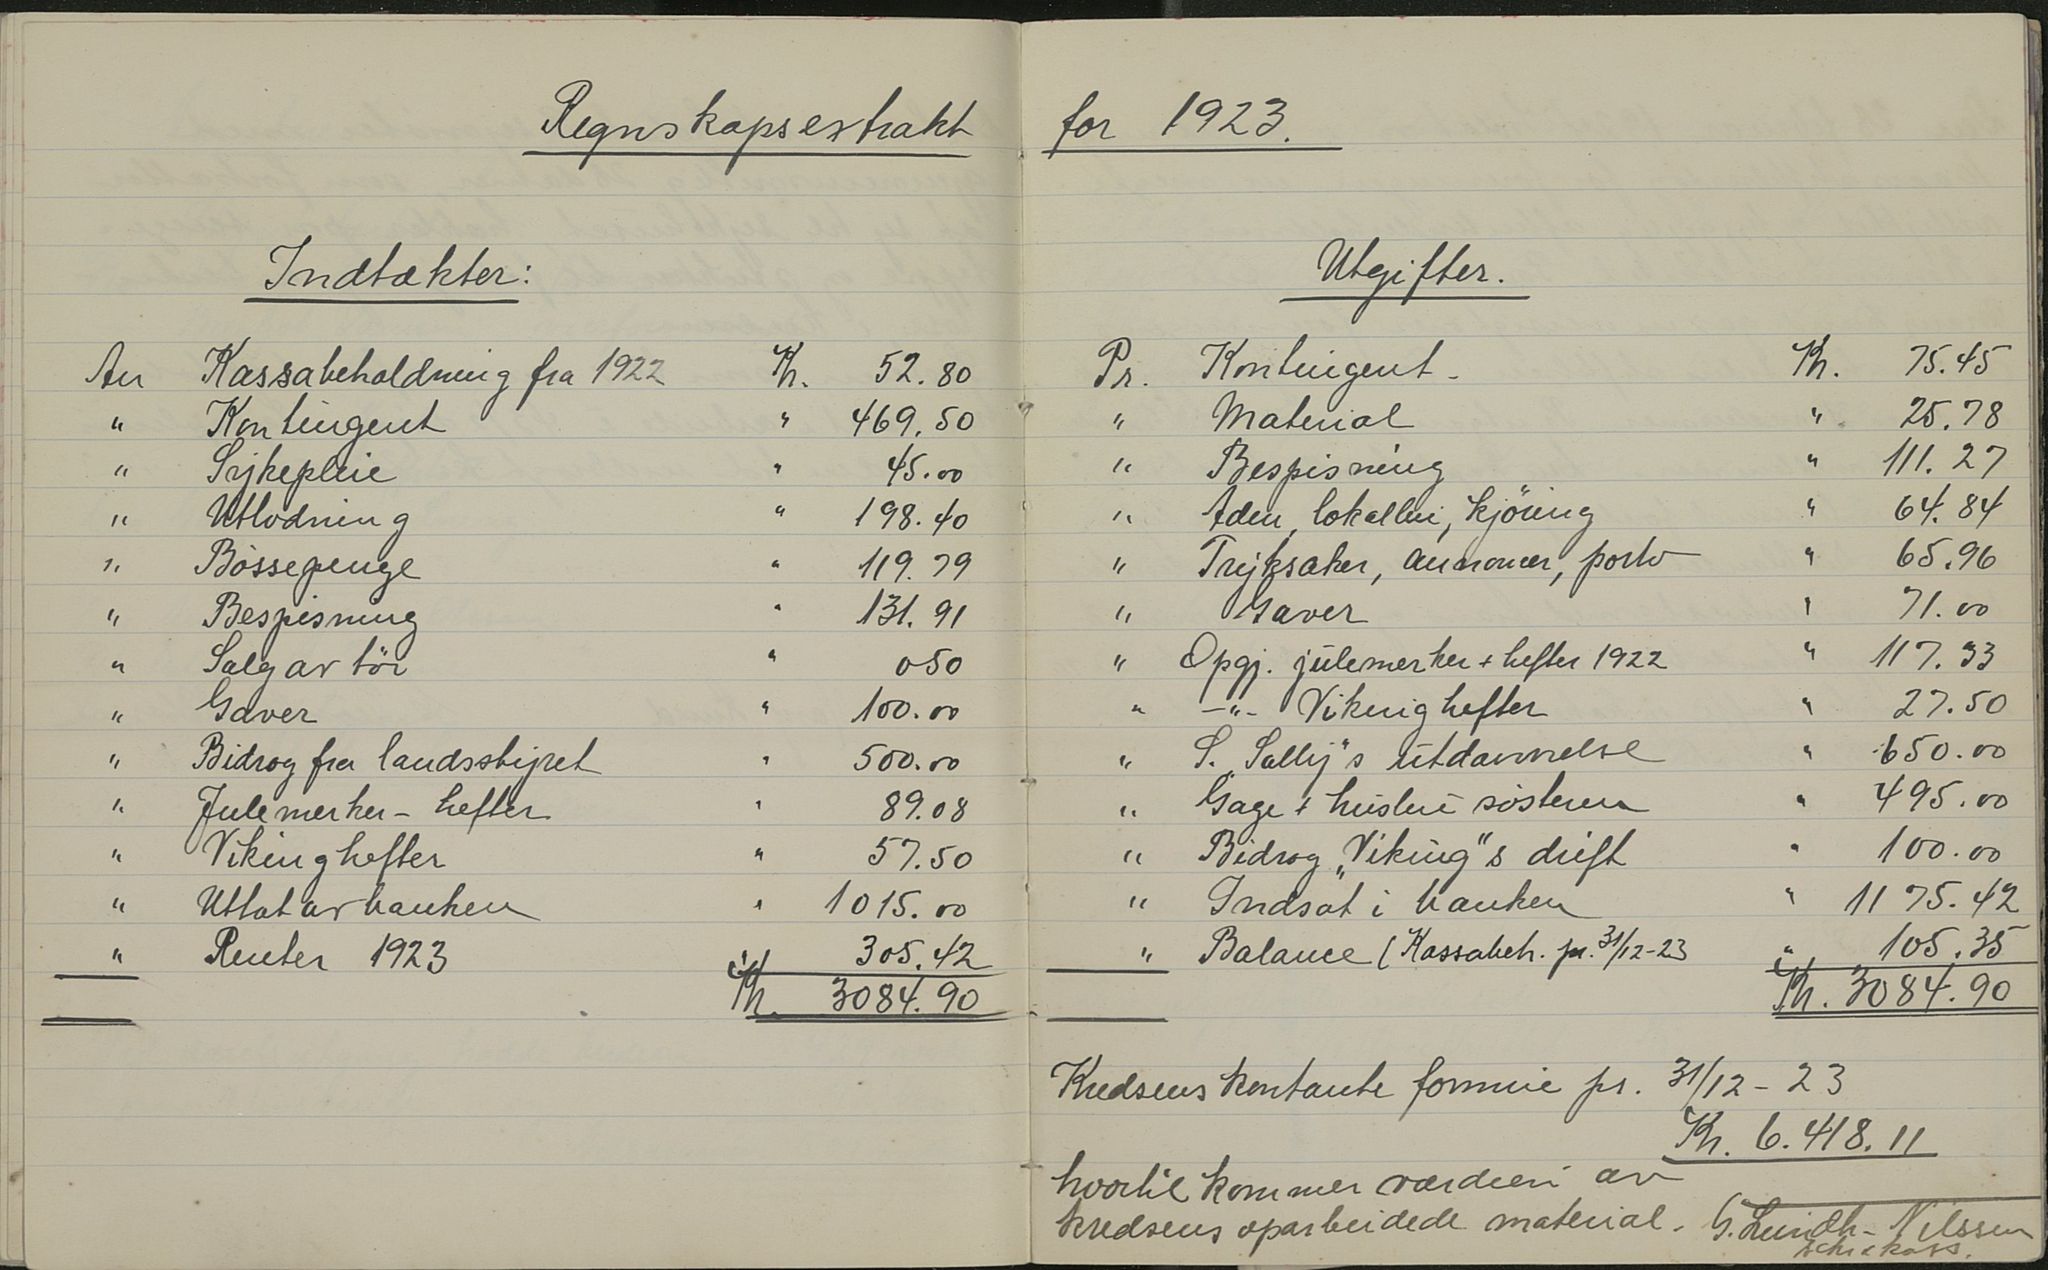 Regnskapsextrakt for 1923.
Indtækter:
An Kassabeholdning fra 1922 Kr. 52.80
" Kontingent " 469.50
" Sykepleie " 45.00
" Utlodning " 198.40
" Bössepenge " 119.79
" Bespisning " 131.91
" Salg av töi " 050
" Gaver " 100.00
" Bidrag fra landsstyret " 500.00
" Julemerker - hefter " 89.08
" Vikinghefter " 57.50
" Uttat av banken " 1015.00
" Renter 1923 " 305.42
Kr. 3084.90
Utgifter.
Pr. Kontingent - Kr. 75.45
" Material " 25.78
" Bespisning " 111.27
" lokalleie, kjöring " 64.84
" Tryksaker, annoncer, porto " 65.96
" Gaver " 71.00
" Opgj. julemerker + hefter 1922 " 117.33
" -"- Vikinghefter " 27.50
" S. "Sally"s utdannelse " 650.00
" Gage + husleie sösteren " 495.00
" Bidrag "Viking"s drift " 100.00
" Indsat i banken " 1175.42
" Balance (Kassabeh. pr. 31/12-23 " 105.35
Kr. 3084.90
Kredsens kontante formue pr. 31/12-23
Kr. 6.418.11
hvortil kommer værdien av
kredsens oparbeidede material. G. Lundh-Nilssen